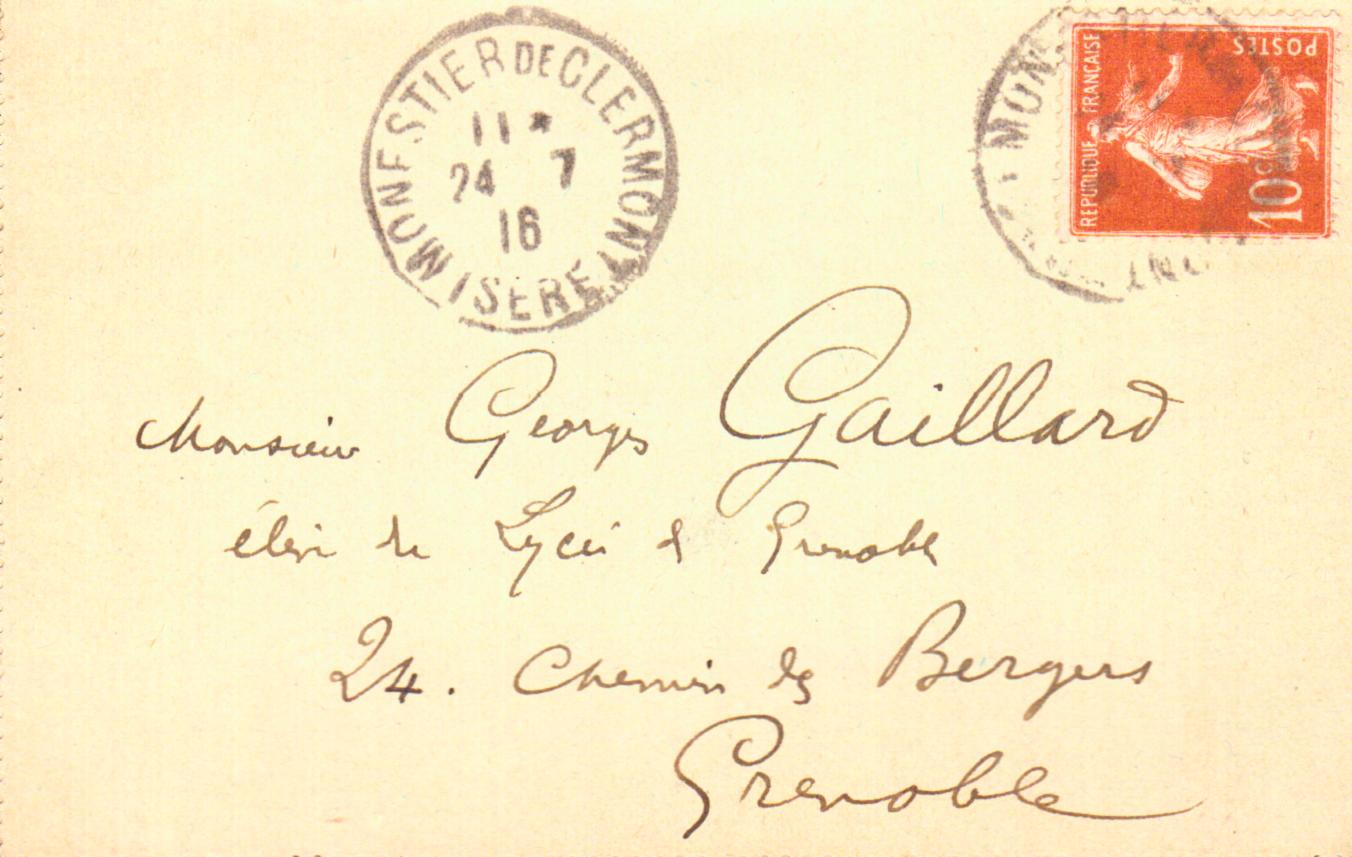 MONESTIER DE CLERMONT
11 *
24 7
16
ISERE
MON
ONT
REPUBLIQUE FRANÇAISE
POSTES
10c
Monsieur Georges Gaillard
élève du Lycée de Grenoble
24. Chemin des Bergers
Grenoble